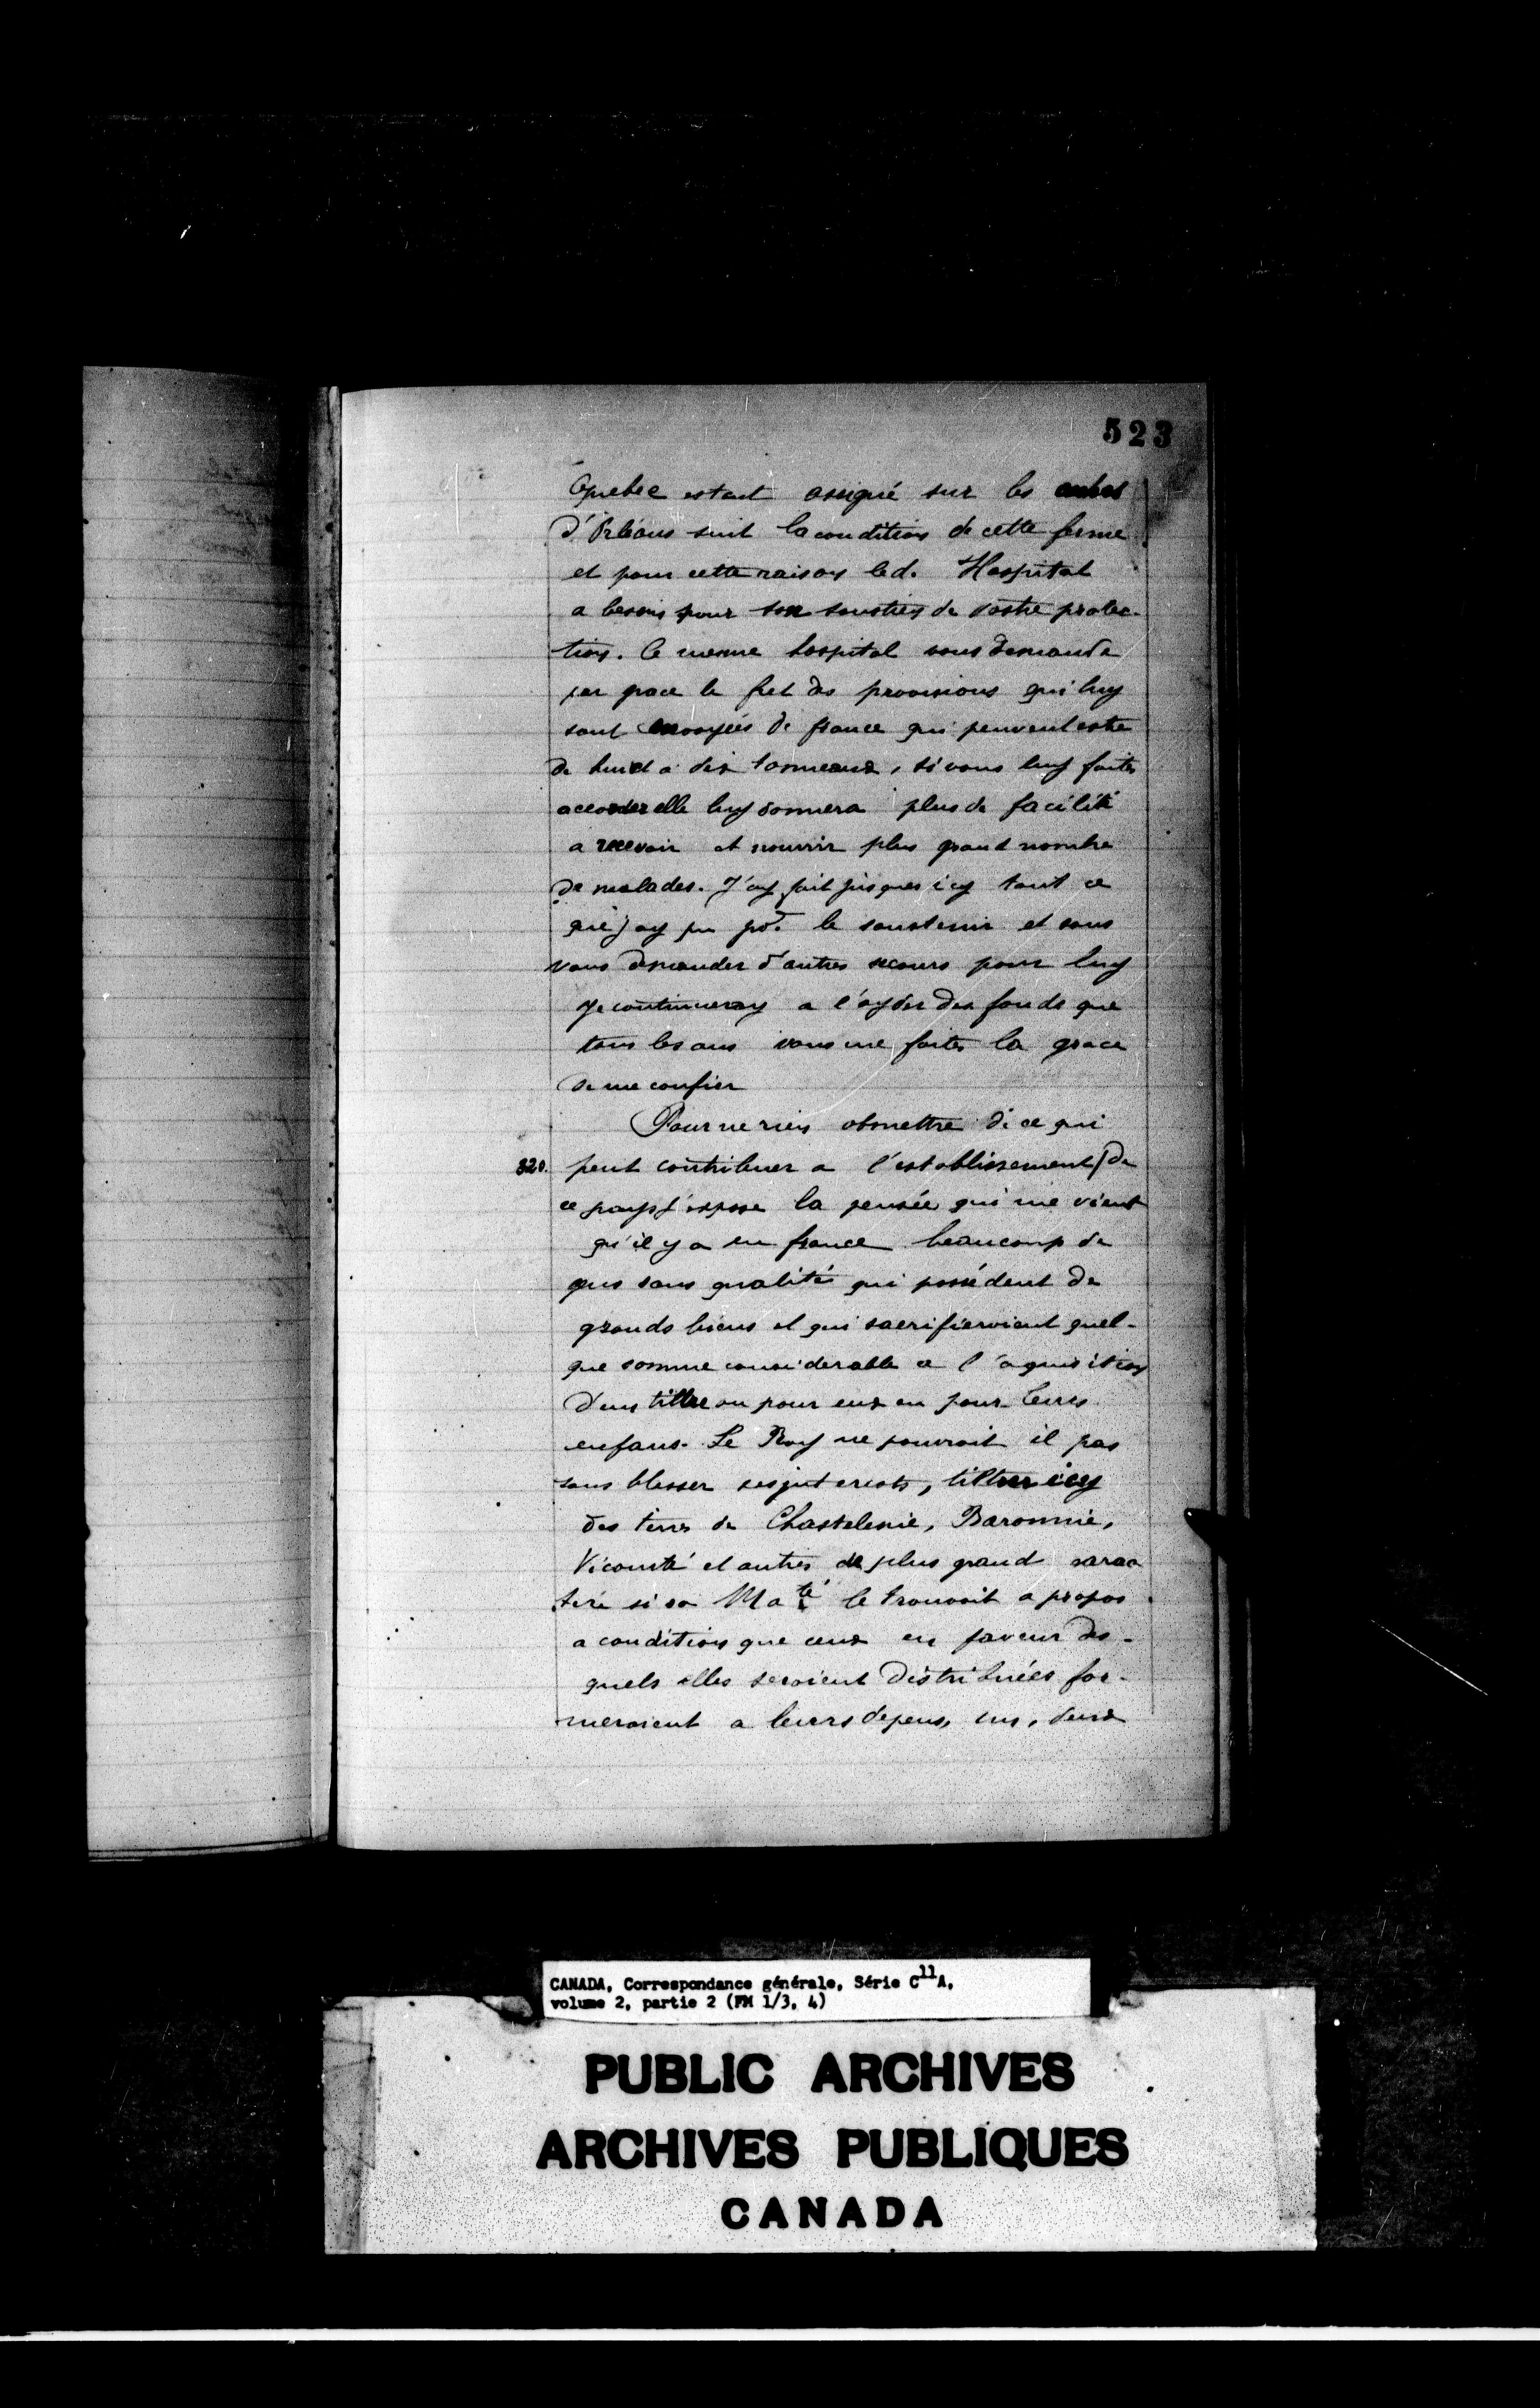 523
Quebec estant assigné sur les coches
d'Orléans suit la condition de cette ferme
et pour cette raison led. Hospital
a besoin pour son soustien de vostre protec-
tion. Ce mesme hospital vous demande
par grace le fret des provisions qui luy
sont envoyées de france qui peuvent estre
de huict a dix tonneaux, si vous luy faites
accorder elle luy donnera plus de facilité
a recevoir et nourrir plus grand nombre
de malades. J'ay fait jusques icy tout ce
que j'ay pu po.r le soustenir et sans
vous demander d'autres secours pour luy
Je continueray a l'ayder des fonds que
tous les ans vous me faites la grace
de me confier
Pour ne rien obmettre de ce qui
320. peut contribuer a l'establissement de
ce pays j'expose la pensée qui me vient
qu'il y a en france beaucoup de
gens sans qualité qui possédent de
grands biens et qui sacrifieroient quel-
que somme considerable a l'aquisition
d'un tiltre ou pour eux ou pour leurs
enfans. Le Roy ne pouvroit il pas
sans blesser ses jnterests, tiltrer icy
des terres de Chastelenie, Baronnie,
Vicomté et autres de plus grand carac
tere si sa Ma.té le trouvoit a propos
a condition que ceux en faveur des-
quels elles seroient distribuées for-
meroient a leurs depens, un, deux
CANADA, Correspondance générale, Série C11A,
volume 2, partie 2 (FM 1/3, 4)
PUBLIC ARCHIVES
ARCHIVES PUBLIQUES
CANADA